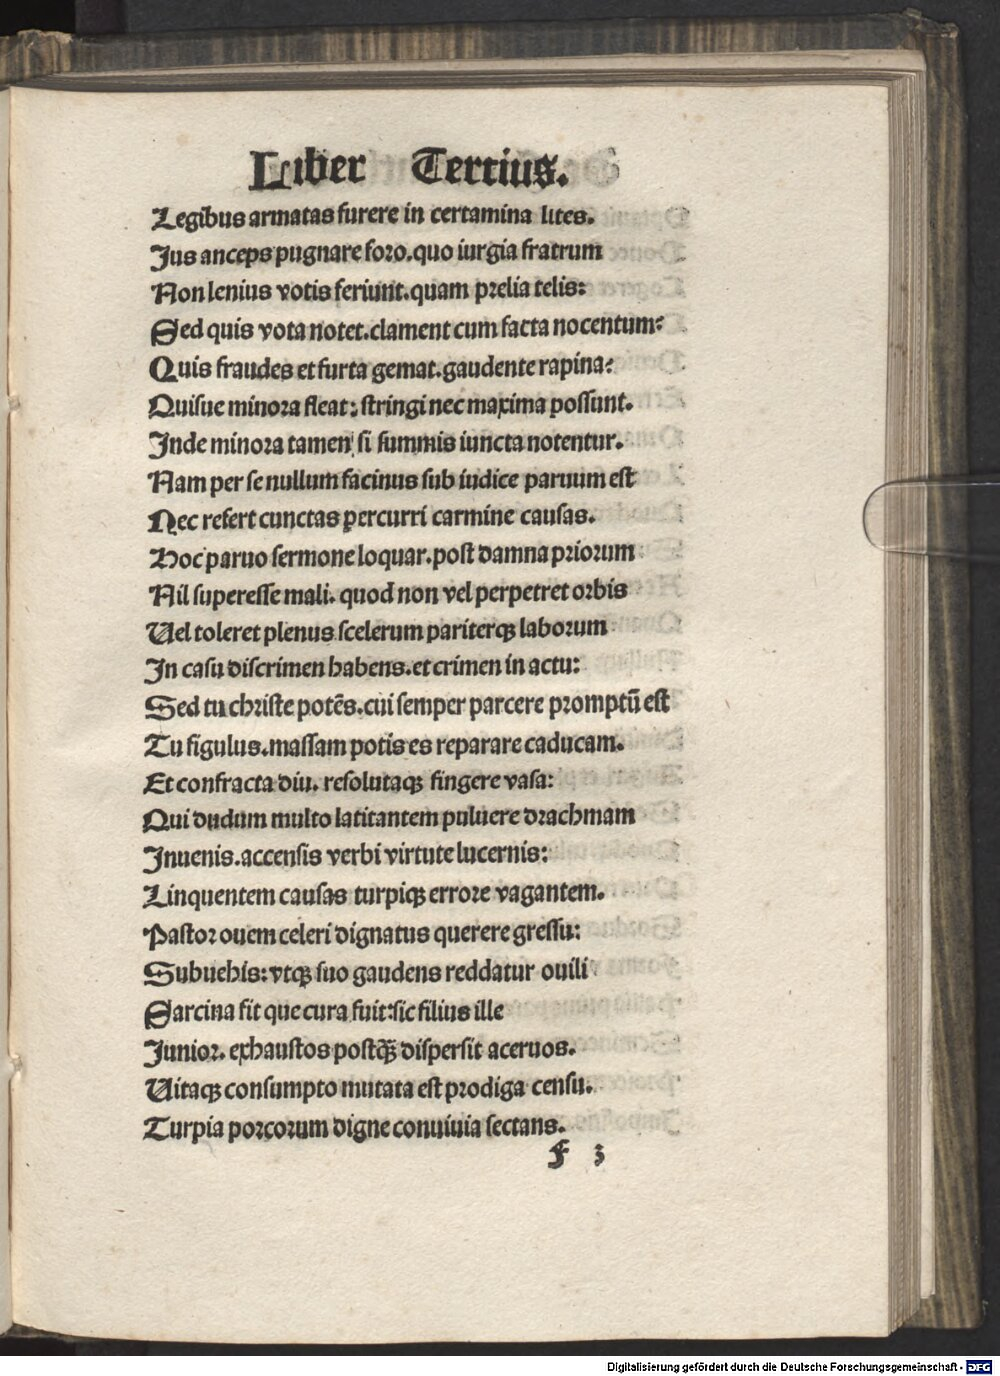 Liber Tertius.
Legibus armatas furere in certamina lites.
Jus anceps pugnare foro. quo iurgia fratrum
Non lenius votis feriunt. quam prelia telis:
Sed quis vota notet. clament cum facta nocentum?
Quis fraudes et furta gemat. gaudente rapina?
Quisue minora fleat: stringi nec maxima possunt.
Inde minora tamen si summis iuncta notentur.
Nam per se nullum facinus sub iudice paruum est
Nec refert cunctas percurri carmine causas.
Hoc paruo sermone loquar. post damna priorum
Nil superesse mali. quod non vel perpetret orbis
Uel toleret plenus scelerum pariterqꝫ laborum
In casu discrimen habens. et crimen in actu:
Sed tu christe potēs. cui semper parcere promptū est
Tu figulus. massam potis es reparare caducam.
Et confracta diu. resolutaqꝫ fingere vasa:
Qui dudum multo latitantem puluere drachmam
Inuenis. accensis verbi virtute lucernis:
Linquentem causas turpiqꝫ errore vagantem.
Pastor ouem celeri dignatus querere gressu:
Subuehis: vtqꝫ suo gaudens reddatur ouili
Sarcina fit que cura fuit: sic filius ille
Junior. exhaustos postqꝫ̄ dispersit aceruos.
Uitaqꝫ consumpto mutata est prodiga censu.
Turpia porcorum digne conuiuia sectans.
f 3
Digitalisierung gefördert durch die Deutsche Forschungsgemeinschaft - DFG